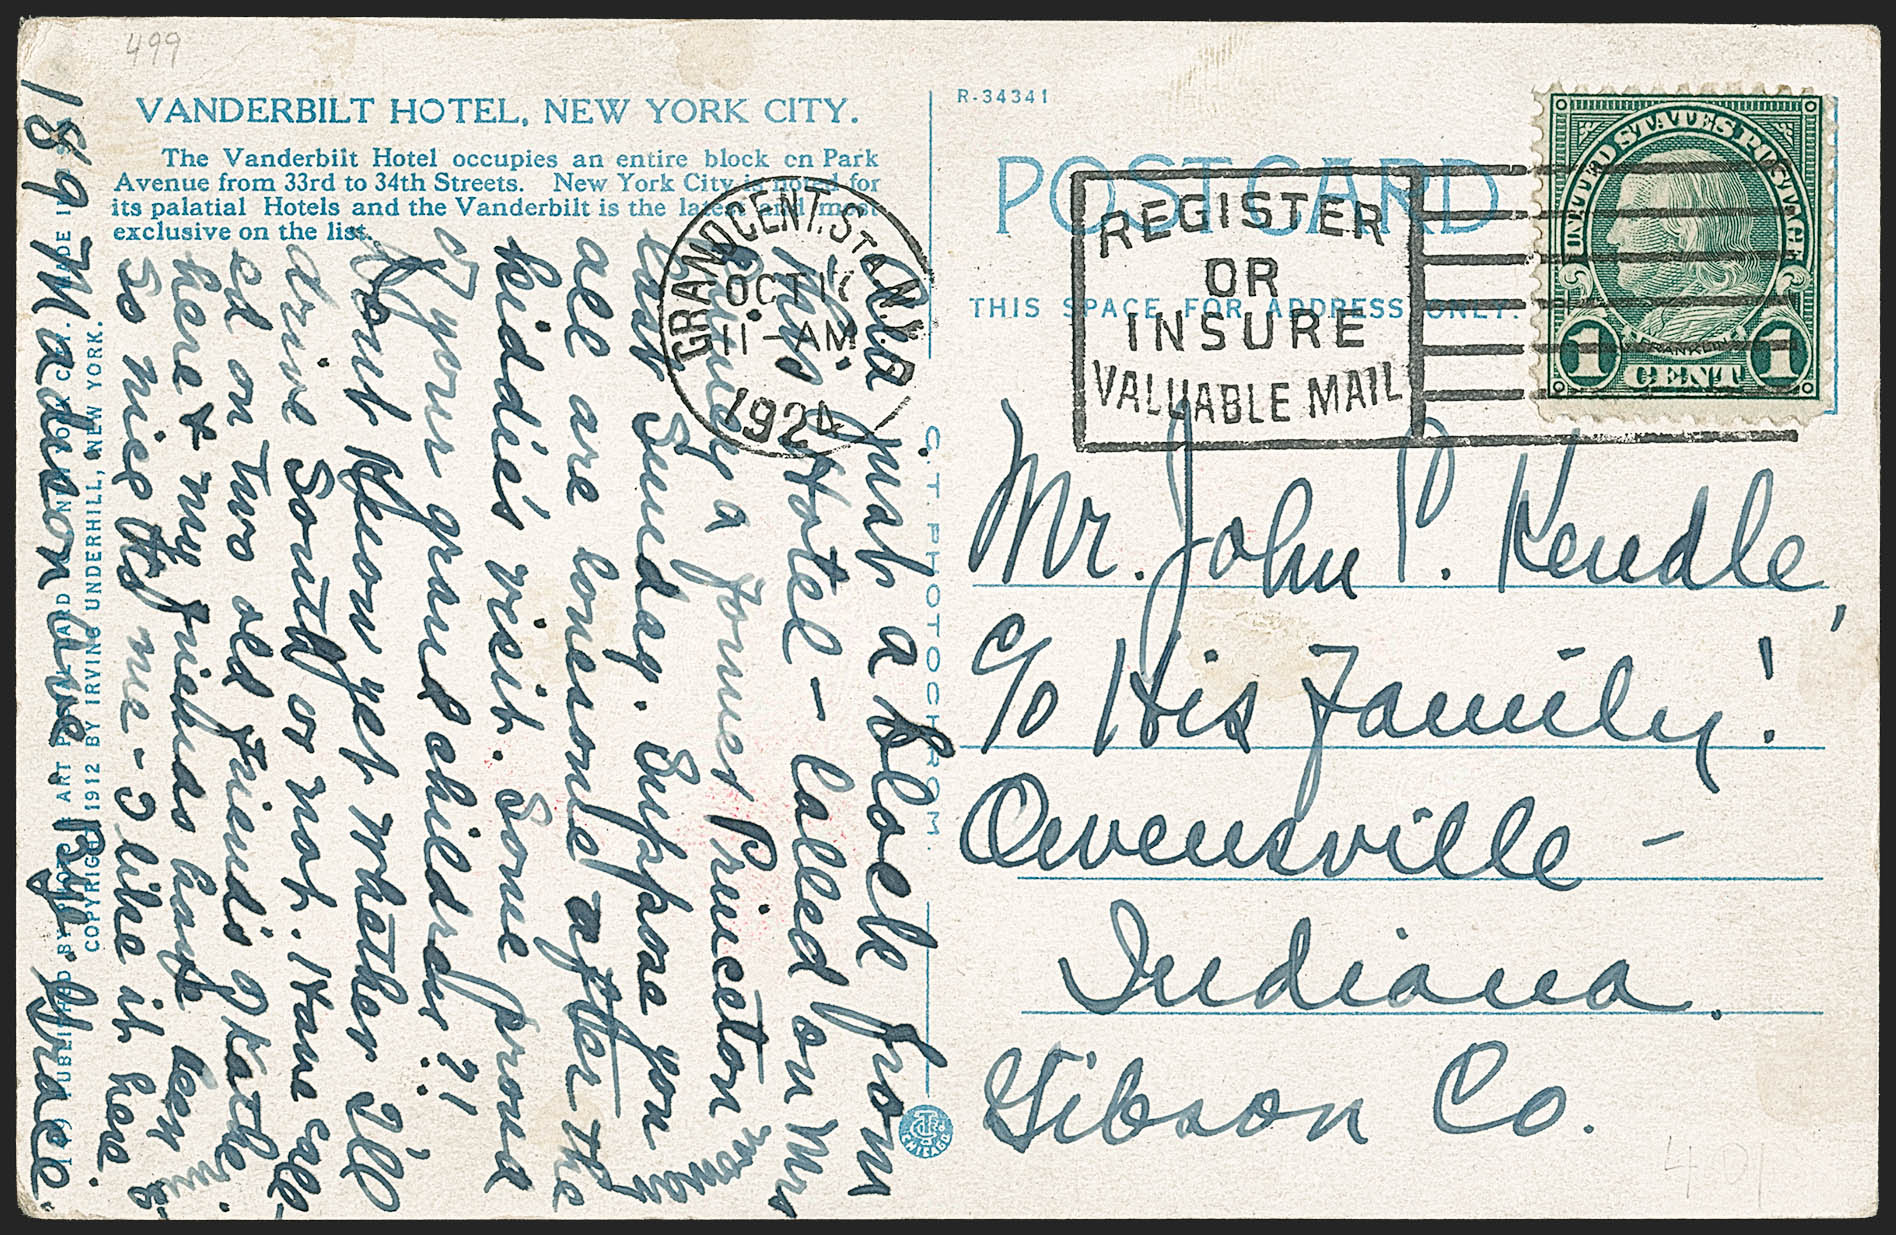 499
VANDERBILT HOTEL, NEW YORK CITY.
The Vanderbilt Hotel occupies an entire block on Park
Avenue from 33rd to 34th Streets. New York City is noted for
its palatial Hotels and the Vanderbilt is the latest and most
exclusive on the list.
Am just a block from
this Hotel - Called on Mrs
a former Princeton woman
last Sunday. Suppose you
all are lonesome after the
kiddie's visit. Some proud
of your grand children?!
Don't know yet whether I'll
drive South or not. Have call-
ed on two old friends of Kather
here & my friends have been
so nice to me - I like it here
189 Madison Ave
Grace.
PUBLISHED BY
COPYRIGHT 1912 BY IRVING UNDERHILL, NEW YORK.
C. T. PHOTOCHROM.
CHICAGO
R-34341
POST CARD
THIS SPACE FOR ADDRESS ONLY.
GRAND CENT. STA. N.Y.
OCT
11-AM
1924
REGISTER
OR
INSURE
VALUABLE MAIL
UNITED STATES POSTAGE
FRANKLIN
1 CENT 1
Mr. John P. Kendle,
c/o His Family!
Owensville -
Indiana.
Gibson Co.
401